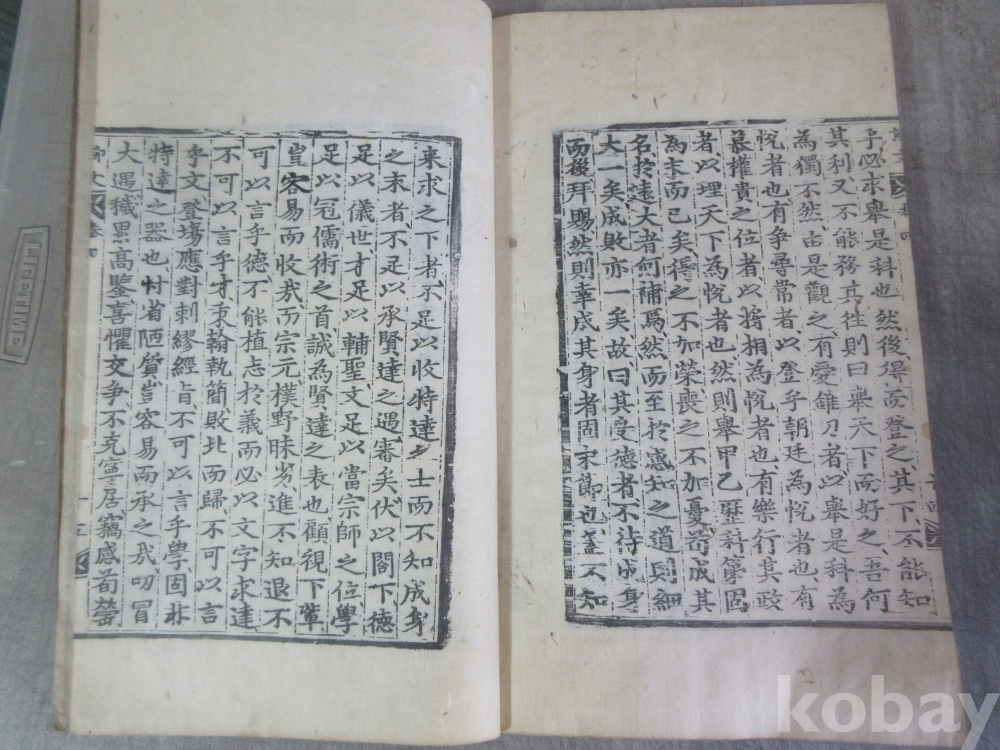 予必求舉是科也然後得而登之其下不能知
其利又不能務其往則曰舉天下而好之吾何
為獨不然由是觀之有愛錐刀者以舉是科為
悅者也有爭尋常者以登乎朝廷為悅者也有
慕權貴之位者以將相為悅者也有樂行其政
者以理天下為悅者也然則舉甲乙歷科第固
為末而已矣得之不加榮喪之不加憂苟成其
名於遠大者何補焉然而至於感知之道則細
大一矣成敗亦一矣故曰其受德者不待成身
而後拜賜然則幸成其身者固宋節也蓋不知
來求之下者不足以收特達士而不知成身
之末者不足以承賢達之遇審矣伏以閣下德
足以儀世才足以輔聖文足以當宗師之位學
足以冠儒術之首誠為賢達之表也顧視下輩
豈容易而收哉而宗元樸野昧劣進不知退不
可以言乎德不能植志於義而必以文字求達
不可以言乎才秉翰執簡敗北而歸不可以言
乎文登場應對刺繆經旨不可以言乎學固非
特達之器也忖省陋質豈容易而承之哉叨冒
大遇穢累高鑒喜懼交爭不克寧居竊感荀罃
卷四
十五
kobay